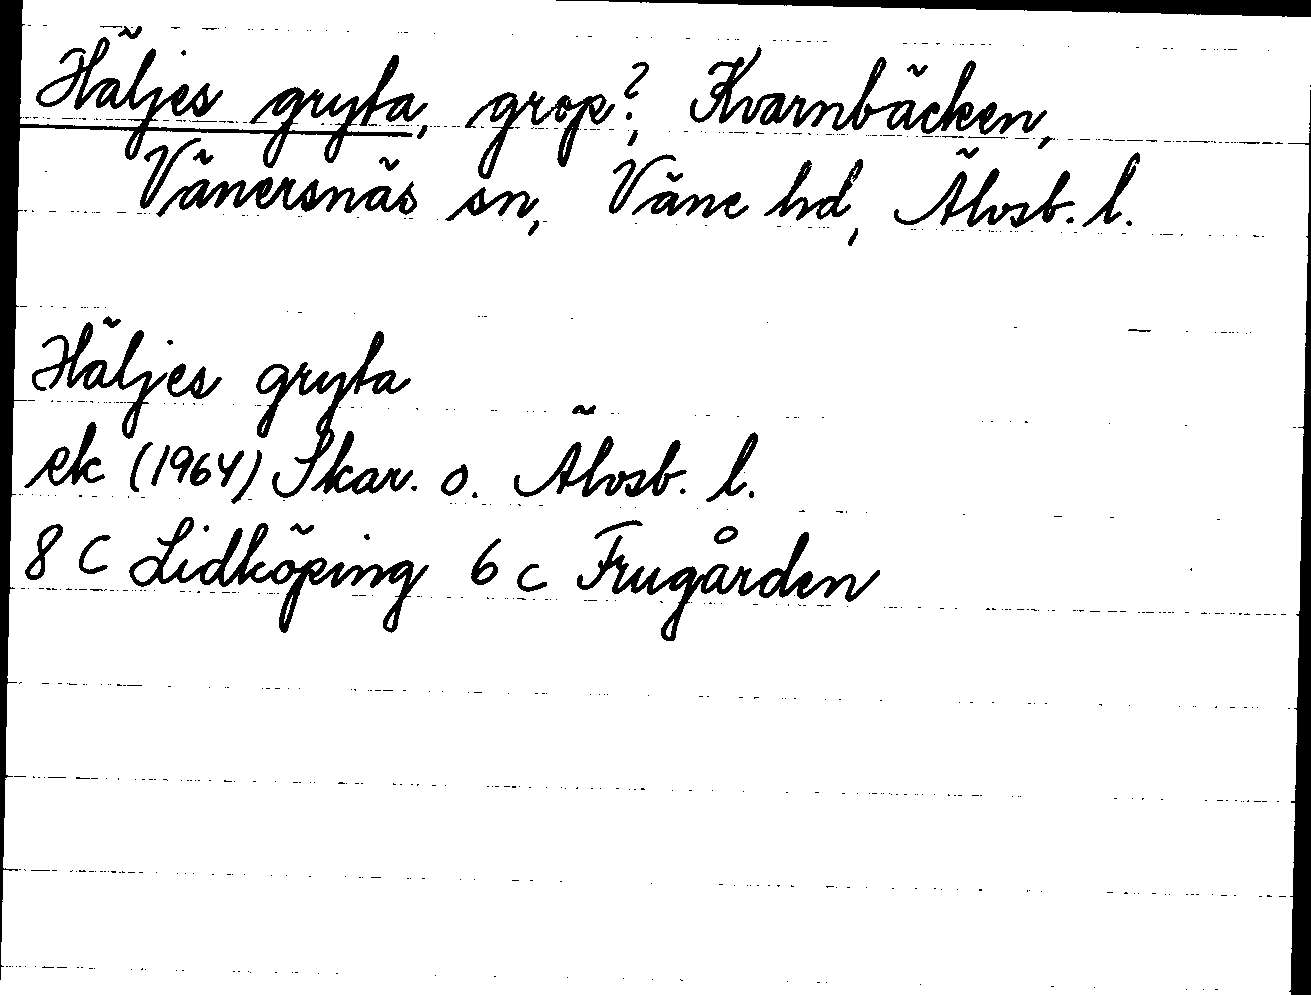 Häljes gryta, grop?, Kvarnbäcken,
Vänersnäs sn, Väne hd, Älvsb. l.
Häljes gryta
ek (1964) Skar. o. Älvsb. l.
8 C Lidköping 6 c Frugården